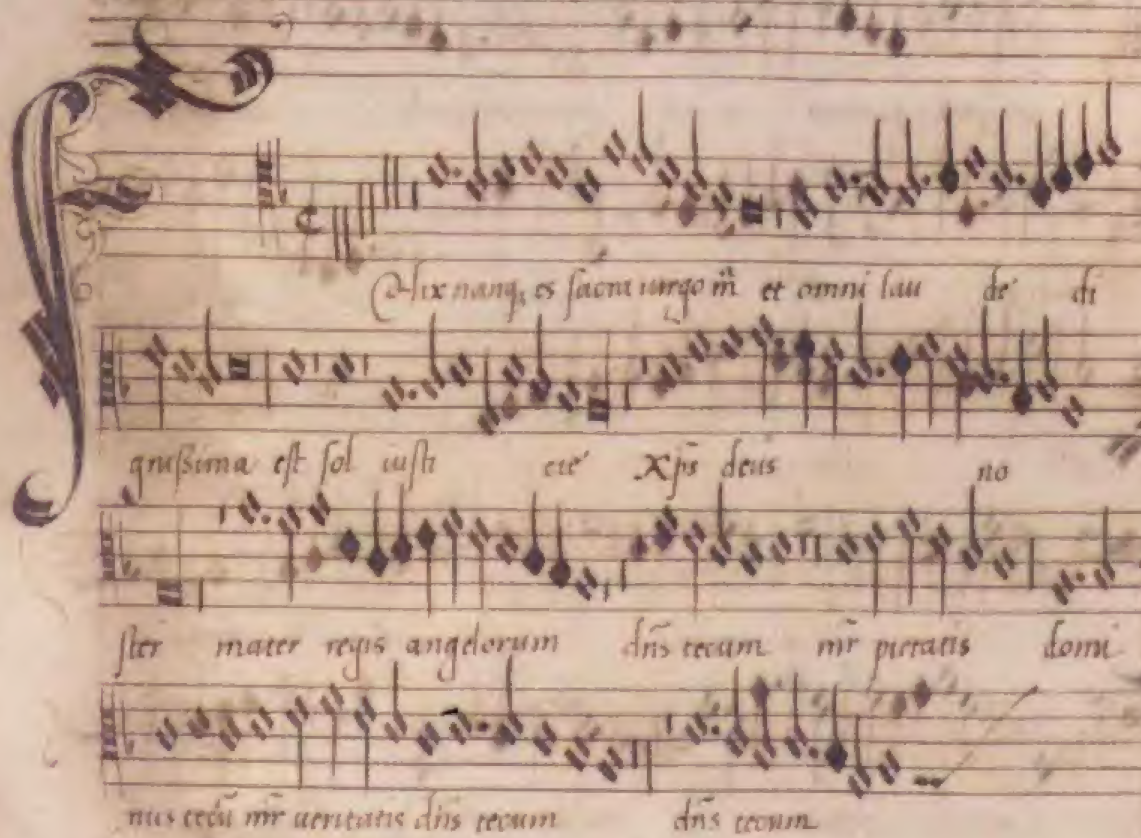 Felix nanq, es sacra uirgo m̃ et omni lau de di
gnißima est sol iusti cie xp̃s deus no
ster mater regis angelorum dñs tecum mr̃ pietatis domi
nus tecũ mr̃ ueritatis dñs tecum dñs tecum